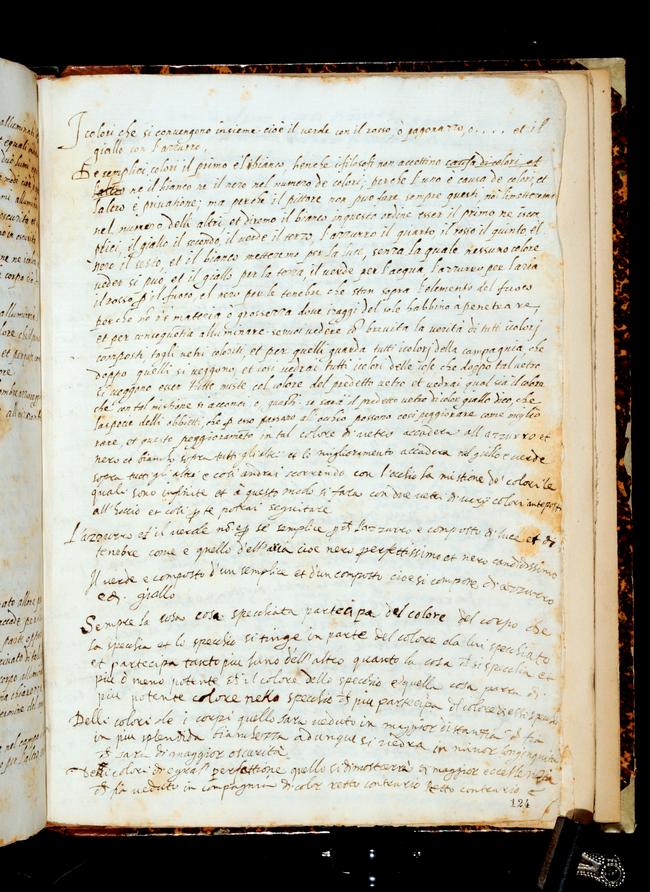 I colori che si convengono insieme cioè il verde con il rosso, ò pagonazzo, o . . . . . et il
giallo con l'azzurro,
De semplici colori il primo è'l bianco, benche i filosofi non accettino causa di colori et
l'altro ne il bianco ne il nero nel numero de colori; perche l'uno è causa de colori, et
l'altro è privatione; ma perche il pittore non puo fare sempre questi, noi li metteremo
nel numero delli altri, et diremo il bianco in questo ordine esser il primo ne sem
plici, il giallo il secondo, il verde il terzo, l'azzurro il quarto, il rosso il quinto, il
nero il sesto, et il bianco metteremo per la luce, senza la quale nessuno colore
veder si può, et il giallo per la terra, il verde per l'acqua l'azzurro per l'aria
il rosso p il fuoco, el nero per le tenebre che stan sopra l'elemento del fuoco
perche nō v'è materia o grossezza dove i raggi del sole habbino à penetrare,
et per conseguētia alluminare. se vuoi vedere cō brevità la verità di tutti i colori
composti togli vetri coloriti, et per quelli guarda tutti i colori della campagnia che
doppo quelli si veggono, et così vedrai tutti i colori delle cose che doppo tal vetro
si veggono esser tutte miste col colore del predetto vetro et vedrai qual sia il colore
che con tal mistione si acconci o, guasti, se sarà il predetto vetro di color giallo dico, che
la spetie delli obbietti, che p esso passano all'occhio possono così peggiorare come miglio
rare, et questo peggioramēto in tal colore di vetro accaderà all'azzurro et
nero et bianco sopra tutti gli altri et lo miglioramento accaderà nel giallo e verde
sopra tutti gli altri e così andrai scorrendo con l'occhio la mistione de' colori le
quali sono infinite et à questo modo si farà con dove vetri di varij colori anteposti
all'occhio et così p te potrai seguitare
L'azzurro et il verde nō è p se semplice p chè l'azzurro e composto di luce et di
tenebre come e quello dell'aria cioe nero perfettissimo et nero candidissimo
Il verde e composto d'un semplice et d'un composto cioe si compone d'azzurro
e di giallo
Sempre la cosa cosa specchiata partecipa del colore del corpo che
la specchia et lo specchio si tinge in parte del colore da lui specchiato
et partecipa tanto piu l'uno dell'altro quanto la cosa chē si specchia et
più ò meno potente chē il colore dello specchio e quella cosa parra di
più potente colore nello specchio chē piu partecipa del colore d'esso specchio
Delli colori de i corpi quello sara veduto in maggior distantia chē sia
in piu splendida bianchezza adunque si vedra in minor longinquità
chē sara di maggior oscurità
Delli colori di egual perfettione quello si dimostrerra di maggior eccellenza
chē sia veduto in compagnia di color retto contrario retto contrario e
124